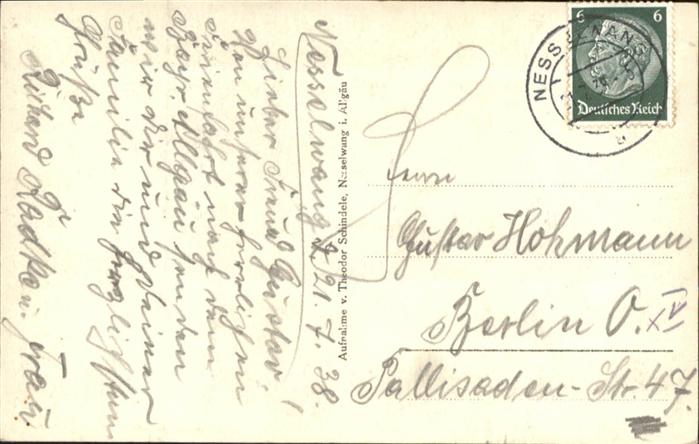 Nesselwang d. 21.7.38.
Lieber Freund Gustav!
Von unserer herrlichen
Ferienfahrt nach dem
Bayr. Allgäu senden
wir dir und deiner
Familie die herzlichsten
Grüße
Richard Radtke u. Frau.
Aufnahme v. Theodor Schindele, Nesselwang i. Allgäu
6 6
Deutsches Reich
NESSELWANG
b
Herrn
Gustav Hohmann
Berlin O. XV
Pallisaden-Str. 47.